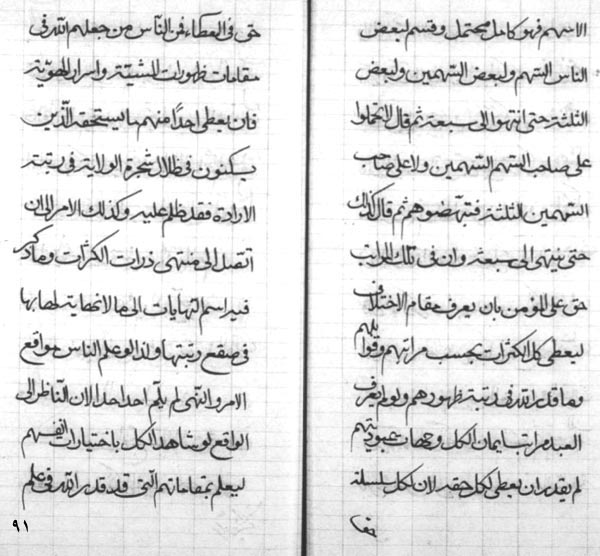 الاسهم فهو كامل محتمل وقسم لبعض
الناس السّهم ولبعض السّهمين ولبعض
الثلثة حتى انتهوا الى سبعة ثم قال لا تحملوا
على صاحب السّهم السّهمين ولا على صاحب
السّهمين الثلثة فتبهضوهم ثم قال كذلك
حتى ينتهى الى سبعة وان فى تلك المراتب
حق على المؤمن بان يعرف مقام الاختلاف
ليعطى كل الكثرات بحسب مراتبهم وقوابلهم
وما قدر الله فى رتبة ظهورهم ولو لم يعرف
العبد مراتب ايمان الكل وجهات عبوديتهم
لم يقدر ان يعطى لكل حقه لان لكل سلسلة
حقا
حتى فى العطاء فمن النّاس من جعلهم الله فى
مقامات ظهورات المشيّة واسرار الهويّة
فان يعطى احدًا منهم ما يستحقه الّذين
يسكنون فى ظلال شجرة الولاية فى رتبة
الارادة فقد ظلم عليه وكذلك الامر الى ان
اتصل الى منتهى ذرات الكثرات وما ذكر
فيه اسم النهايات الى ما لا نهاية لها بها
فى صقع رتبتها ولذا لو علم الناس مواقع
الامر والنّهى لم يلم احد احدا لان النّاظر الى
الواقع لو شاهد الكل باختيارات انفسهم
ليعلم بمقاماتهم الّتى قد قدر الله فى علم
٩١